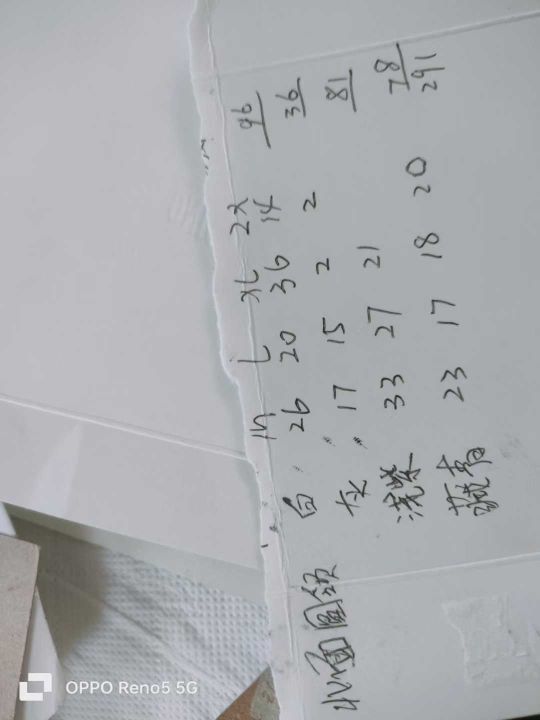 m L xL 2X
小 圆领 白 26 20 36 14 96
灰 17 15 2 2 36
浅紫 33 27 21 81
藏青 23 17 18 20 78
291
OPPO Reno5 5G